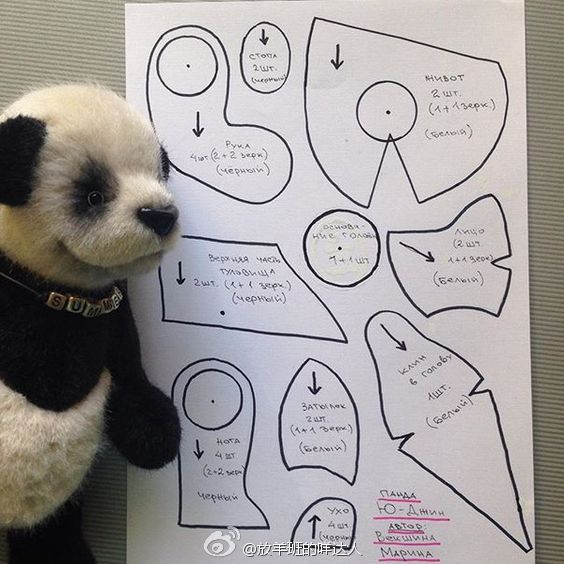 СТОПА
2 ШТ.
(черный)
Рука
4 шт. (2+2 зерк)
(черный)
ЖИВОТ
2 шт.
(1+1 зерк.)
(белый)
ОСНОВА-
НИЕ ГОЛОВЫ
1+1 шт
ЛИЦО
(2 шт.
1+1 зерк)
(Белый)
Верхняя часть
туловища
2 шт. (1+1 зерк.)
(черный)
КЛИН
В ГОЛОВУ
1 шт.
(белый)
ЗАТЫЛОК
2 шт.
(1+1 зерк.)
(Белый)
НОГА
4 шт
(2+2 зерк)
черный
УХО
4 шт.
(черные)
ПАНДА
Ю-ДЖИН
АВТОР:
ВЕКШИНА
МАРИНА
SUMM
@放羊班的咩达人